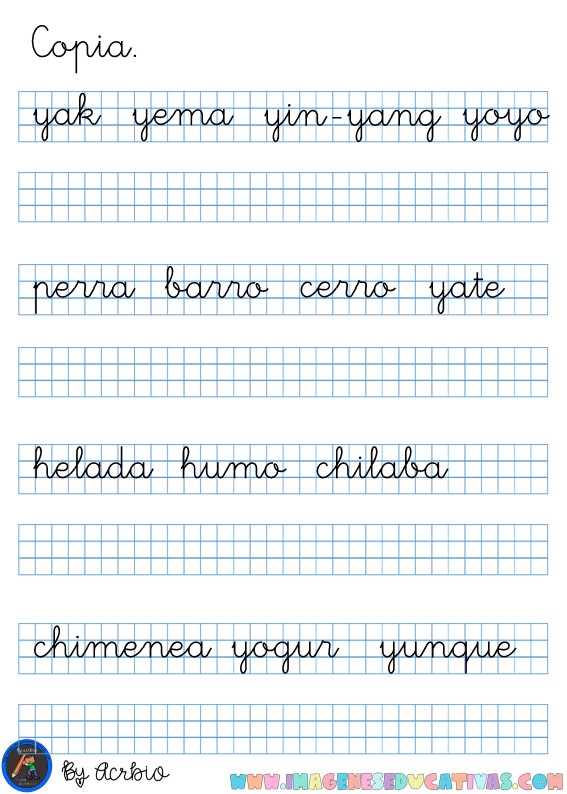 Copia.
yak yema yin-yang yoyo
perra barro cerro yate
helada humo chilaba
chimenea yogur yunque
By Acrbio
WWW.IMAGENESEDUCATIVAS.COM